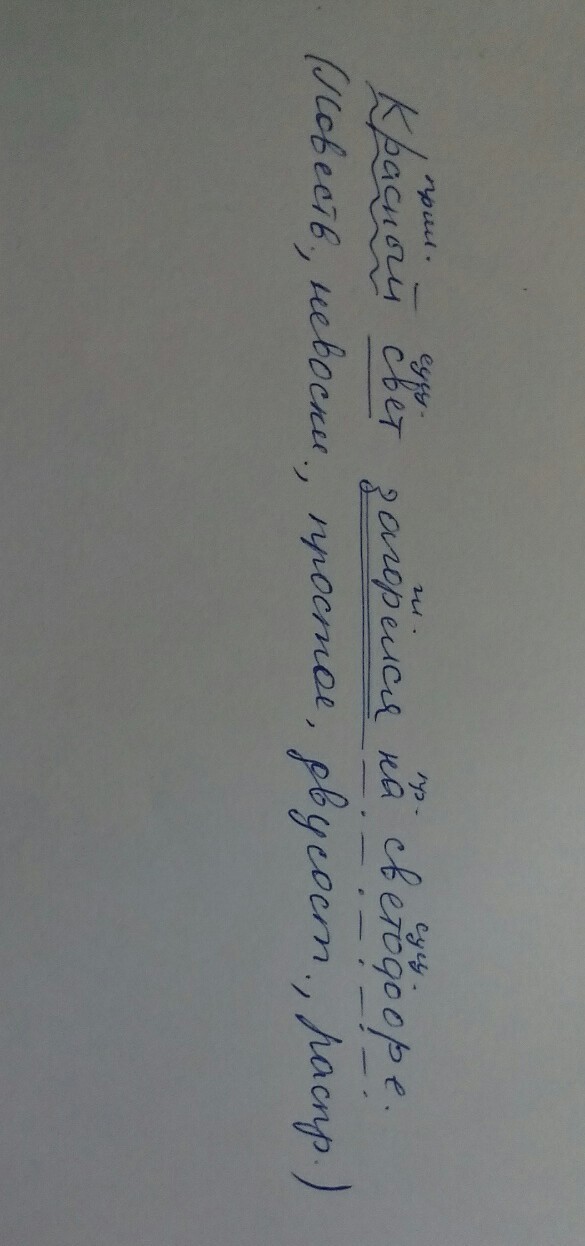 прил. сущ. гл. пр. сущ.
Красный свет загорелся на светофоре.
(Повеств., невоскл., простое, двусост., распр.)